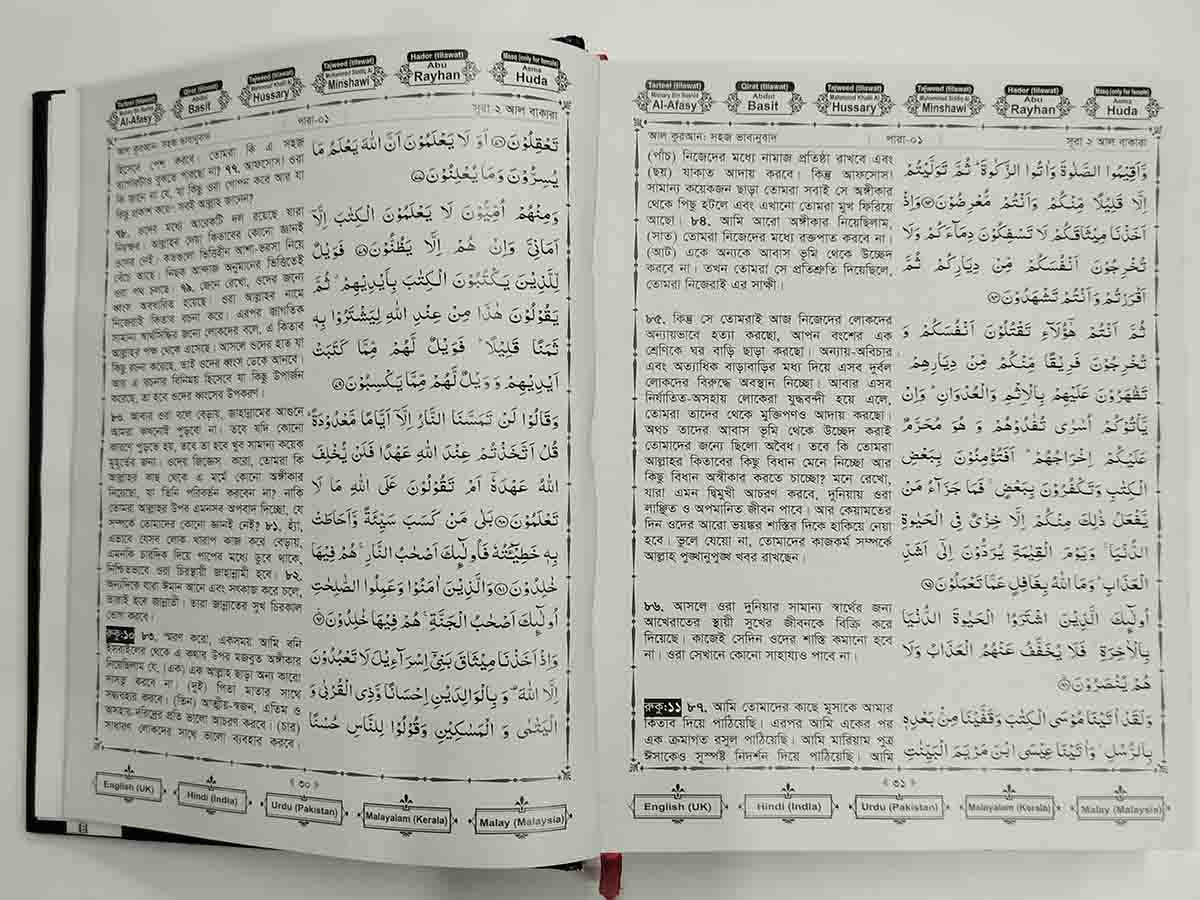 Tarteel (tilawat)
Mishary Bin Rashid
Al-Afasy
Qirat (tilawat)
Abdul
Basit
Tajweed (tilawat)
Mahamoud Khalil Al
Hussary
Tajweed (tilawat)
Muhammad Siddiq Al
Minshawi
Hador (tilawat)
Abu
Rayhan
Masq (only for female)
Asma
Huda
আল কুরআন: সহজ ভাবানুবাদ
পারা-০১
সূরা ২ আল বাকারা
হিসেবে পেশ করবে। তোমরা কি এ সহজ
ব্যাপারটাও বুঝতে পারছো না? ৭৭. আফসোস! ওরা
কি জানে না যে, যা কিছু ওরা গোপন করে আর যা
কিছু প্রকাশ করে- সবই আল্লাহ জানেন?
৭৮. ওদের মধ্যে আরেকটি দল রয়েছে যারা
নিরক্ষর। আল্লাহর দেয়া কিতাবের কোনো জ্ঞানই
ওদের নেই। কতগুলো ভিত্তিহীন আশা-ভরসা নিয়ে
বেঁচে আছে। নিছক আন্দাজ অনুমানের ভিত্তিতেই
ওরা পথ চলছে। ৭৯. জেনে রেখো, ওদের জন্যে
ধ্বংস অবধারিত হয়েছে। ওরা আল্লাহর নামে
নিজেরাই কিতাব রচনা করে। এরপর জাগতিক
সামান্য স্বার্থসিদ্ধির জন্যে লোকদের বলে, এ কিতাব
আল্লাহর পক্ষ থেকে এসেছে। আসলে ওদের হাত যা
কিছু রচনা করেছে, তাই ওদের ধ্বংস ডেকে আনবে।
আর এ রচনার বিনিময় হিসেবে যা কিছু উপার্জন
করেছে, তা হবে ওদের ধ্বংসের উপকরণ।
৮০. আবার ওরা বলে বেড়ায়, জাহান্নামের আগুনে
আমরা কখনোই পুড়বো না। তবে যদি কোনো
কারণে পুড়তে হয়, তবে তা হবে খুব সামান্য কয়েক
মুহূর্তের জন্য। ওদের জিজ্ঞেস করো, তোমরা কি
আল্লাহর কাছ থেকে এ মর্মে কোনো অঙ্গীকার
নিয়েছো, যা তিনি পরিবর্তন করবেন না? নাকি
তোমরা আল্লাহর উপর এমনসব অপবাদ দিচ্ছো, যে
সম্পর্কে তোমাদের কোনো জ্ঞানই নেই? ৮১. হ্যাঁ,
এভাবে যেসব লোক খারাপ কাজ করে বেড়ায়,
এমনকি চারদিক দিয়ে পাপের মধ্যে ডুবে থাকে,
নিশ্চিতভাবে ওরা চিরস্থায়ী জাহান্নামী হবে। ৮২.
অন্যদিকে যারা ঈমান আনে এবং সৎকাজ করে চলে,
তারাই হবে জান্নাতী। তারা জান্নাতের সুখ চিরকাল
ভোগ করবে।
রুকু:১০ ৮৩. স্মরণ করো, একসময় আমি বনি
ইসরাইলের থেকে এ কথার উপর মজবুত অঙ্গীকার
নিয়েছিলাম যে, (এক) এক আল্লাহ ছাড়া অন্য কারো
দাসত্ব করবে না। (দুই) পিতা মাতার সাথে
সদ্ব্যবহার করবে। (তিন) আত্মীয়-স্বজন, এতিম ও
অসহায়-দরিদ্রের প্রতি ভালো আচরণ করবে। (চার)
সাধারণ লোকদের সাথে ভালো ব্যবহার করবে।
تَعْقِلُوْنَ﴿٧٦﴾ اَوَ لَا يَعْلَمُوْنَ اَنَّ اللهَ يَعْلَمُ مَا
يُسِرُّوْنَ وَمَا يُعْلِنُوْنَ﴿٧٧﴾
وَمِنْهُمْ اُمِّيُّوْنَ لَا يَعْلَمُوْنَ الْكِتٰبَ اِلَّآ
اَمَانِيَّ وَاِنْ هُمْ اِلَّا يَظُنُّوْنَ﴿٧٨﴾ فَوَيْلٌ
لِّلَّذِيْنَ يَكْتُبُوْنَ الْكِتٰبَ بِاَيْدِيْهِمْ ۗ ثُمَّ
يَقُوْلُوْنَ هٰذَا مِنْ عِنْدِ اللهِ لِيَشْتَرُوْا بِهٖ
ثَمَنًا قَلِيْلًا ؕ فَوَيْلٌ لَّهُمْ مِّمَّا كَتَبَتْ
اَيْدِيْهِمْ وَوَيْلٌ لَّهُمْ مِّمَّا يَكْسِبُوْنَ﴿٧٩﴾
وَقَالُوْا لَنْ تَمَسَّنَا النَّارُ اِلَّآ اَيَّامًا مَّعْدُوْدَةً ؕ
قُلْ اَتَّخَذْتُمْ عِنْدَ اللهِ عَهْدًا فَلَنْ يُّخْلِفَ
اللهُ عَهْدَهٗٓ اَمْ تَقُوْلُوْنَ عَلَى اللهِ مَا لَا
تَعْلَمُوْنَ﴿٨٠﴾ بَلٰى مَنْ كَسَبَ سَيِّئَةً وَّاَحَاطَتْ
بِهٖ خَطِيْٓـَٔتُهٗ فَاُولٰٓئِكَ اَصْحٰبُ النَّارِ ۚ هُمْ فِيْهَا
خٰلِدُوْنَ﴿٨١﴾ وَالَّذِيْنَ اٰمَنُوْا وَعَمِلُوا الصّٰلِحٰتِ
اُولٰٓئِكَ اَصْحٰبُ الْجَنَّةِ ۚ هُمْ فِيْهَا خٰلِدُوْنَ﴿٨٢﴾
وَاِذْ اَخَذْنَا مِيْثَاقَ بَنِيْٓ اِسْرَآءِيْلَ لَا تَعْبُدُوْنَ
اِلَّا اللهَ ۟ وَبِالْوَالِدَيْنِ اِحْسَانًا وَّذِي الْقُرْبٰى وَ
الْيَتٰمٰى وَ الْمَسٰكِيْنِ وَقُوْلُوْا لِلنَّاسِ حُسْنًا
৩০
English (UK)
Hindi (India)
Urdu (Pakistan)
Malayalam (Kerala)
Malay (Malaysia)
Tarteel (tilawat)
Mishary Bin Rashid
Al-Afasy
Qirat (tilawat)
Abdul
Basit
Tajweed (tilawat)
Mahamoud Khalil Al
Hussary
Tajweed (tilawat)
Muhammad Siddiq Al
Minshawi
Hador (tilawat)
Abu
Rayhan
Masq (only for female)
Asma
Huda
আল কুরআন: সহজ ভাবানুবাদ
পারা-০১
সূরা ২ আল বাকারা
(পাঁচ) নিজেদের মধ্যে নামাজ প্রতিষ্ঠা রাখবে এবং
(ছয়) যাকাত আদায় করবে। কিন্তু আফসোস!
সামান্য কয়েকজন ছাড়া তোমরা সবাই সে অঙ্গীকার
থেকে পিছু হটলে এবং এখনো তোমরা মুখ ফিরিয়ে
আছো। ৮৪. আমি আরো অঙ্গীকার নিয়েছিলাম,
(সাত) তোমরা নিজেদের মধ্যে রক্তপাত করবে না।
(আট) একে অন্যকে আবাস ভূমি থেকে উচ্ছেদ
করবে না। তখন তোমরা সে প্রতিশ্রুতি দিয়েছিলে,
তোমরা নিজেরাই এর সাক্ষী।
৮৫. কিন্তু সে তোমরাই আজ নিজেদের লোকদের
অন্যায়ভাবে হত্যা করছো, আপন বংশের এক
শ্রেণিকে ঘর বাড়ি ছাড়া করছো। অন্যায়-অবিচার
এবং অত্যাধিক বাড়াবাড়ির মধ্য দিয়ে এসব দুর্বল
লোকদের বিরুদ্ধে অবস্থান নিচ্ছো। আবার এসব
নির্যাতিত-অসহায় লোকেরা যুদ্ধবন্দী হয়ে এলে,
তোমরা তাদের থেকে মুক্তিপণও আদায় করছো।
অথচ তাদের আবাস ভূমি থেকে উচ্ছেদ করাই
তোমাদের জন্যে ছিলো অবৈধ। তবে কি তোমরা
আল্লাহর কিতাবের কিছু বিধান মেনে নিচ্ছো আর
কিছু বিধান অস্বীকার করতে চাচ্ছো? মনে রেখো,
যারা এমন দ্বিমুখী আচরণ করবে, দুনিয়ায় ওরা
লাঞ্ছিত ও অপমানিত জীবন পাবে। আর কেয়ামতের
দিন ওদের আরো ভয়ঙ্কর শাস্তির দিকে হাকিয়ে নেয়া
হবে। ভুলে যেয়ো না, তোমাদের কাজকর্ম সম্পর্কে
আল্লাহ পুঙ্খানুপুঙ্খ খবর রাখছেন।
৮৬. আসলে ওরা দুনিয়ার সামান্য স্বার্থের জন্য
আখেরাতের স্থায়ী সুখের জীবনকে বিক্রি করে
দিয়েছে। কাজেই সেদিন ওদের শাস্তি কমানো হবে
না। ওরা সেখানে কোনো সাহায্যও পাবে না।
রুকু:১১ ৮৭. আমি তোমাদের কাছে মুসাকে আমার
কিতাব দিয়ে পাঠিয়েছি। এরপর আমি একের পর
এক ক্রমাগত রসুল পাঠিয়েছি। আমি মারিয়াম পুত্র
ঈসাকেও সুস্পষ্ট নিদর্শন দিয়ে পাঠিয়েছি। আমি
وَاَقِيْمُوا الصَّلٰوةَ وَاٰتُوا الزَّكٰوةَ ؕ ثُمَّ تَوَلَّيْتُمْ
اِلَّا قَلِيْلًا مِّنْكُمْ وَاَنْتُمْ مُّعْرِضُوْنَ﴿٨٣﴾ وَاِذْ
اَخَذْنَا مِيْثَاقَكُمْ لَا تَسْفِكُوْنَ دِمَآءَكُمْ وَلَا
تُخْرِجُوْنَ اَنْفُسَكُمْ مِّنْ دِيَارِكُمْ ثُمَّ
اَقْرَرْتُمْ وَاَنْتُمْ تَشْهَدُوْنَ﴿٨٤﴾
ثُمَّ اَنْتُمْ هٰٓؤُلَآءِ تَقْتُلُوْنَ اَنْفُسَكُمْ وَ
تُخْرِجُوْنَ فَرِيْقًا مِّنْكُمْ مِّنْ دِيَارِهِمْ
تَظٰهَرُوْنَ عَلَيْهِمْ بِالْاِثْمِ وَالْعُدْوَانِ ؕ وَاِنْ
يَّاْتُوْكُمْ اُسٰرٰى تُفٰدُوْهُمْ وَ هُوَ مُحَرَّمٌ
عَلَيْكُمْ اِخْرَاجُهُمْ ؕ اَفَتُؤْمِنُوْنَ بِبَعْضِ
الْكِتٰبِ وَتَكْفُرُوْنَ بِبَعْضٍ ۚ فَمَا جَزَآءُ مَنْ
يَّفْعَلُ ذٰلِكَ مِنْكُمْ اِلَّا خِزْيٌ فِي الْحَيٰوةِ
الدُّنْيَا ۚ وَيَوْمَ الْقِيٰمَةِ يُرَدُّوْنَ اِلٰٓى اَشَدِّ
الْعَذَابِ ؕ وَمَا اللهُ بِغَافِلٍ عَمَّا تَعْمَلُوْنَ﴿٨٥﴾
اُولٰٓئِكَ الَّذِيْنَ اشْتَرَوُا الْحَيٰوةَ الدُّنْيَا
بِالْاٰخِرَةِ ۫ فَلَا يُخَفَّفُ عَنْهُمُ الْعَذَابُ وَلَا
هُمْ يُنْصَرُوْنَ﴿٨٦﴾
وَلَقَدْ اٰتَيْنَا مُوْسَى الْكِتٰبَ وَقَفَّيْنَا مِنْۢ بَعْدِهٖ
بِالرُّسُلِ ۫ وَاٰتَيْنَا عِيْسَى ابْنَ مَرْيَمَ الْبَيِّنٰتِ
৩১
English (UK)
Hindi (India)
Urdu (Pakistan)
Malayalam (Kerala)
Malay (Malaysia)